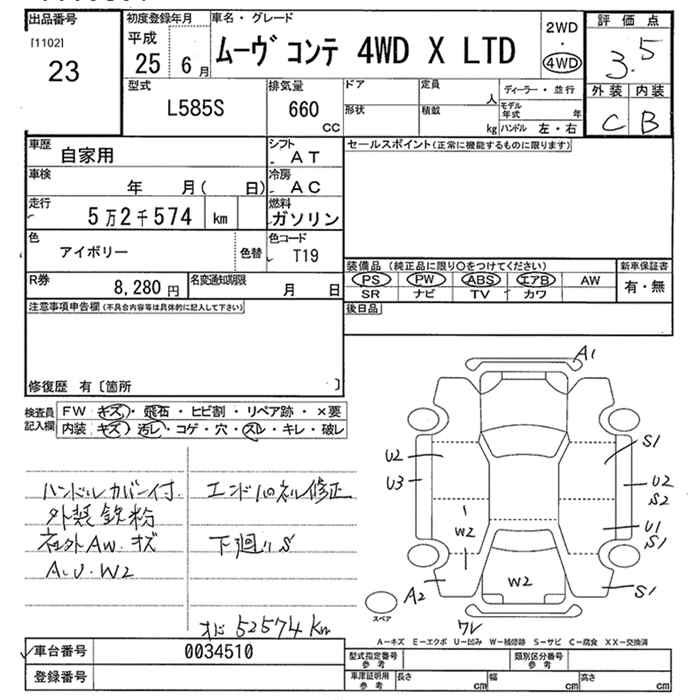 出品番号
[1102]
23
初度登録年月
平成
25 6月
車名・グレード
ムーヴ コンテ 4WD X LTD
2WD
・
4WD
評価点
3.5
外装 内装
C B
型式
L585S
排気量
660
cc
ドア
形状
定員
人
積載
kg
ディーラー・並行
モデル年式 年
ハンドル 左・右
車歴
自家用
シフト
AT
車検
年 月( 日)
冷房
AC
走行
5万2千574 km
燃料
ガソリン
色
アイボリー
色替
色コード
T19
R券
8,280円
名変通知期限
月 日
セールスポイント(正常に機能するものに限ります)
装備品(純正品に限り〇をつけてください)
PS PW ABS エアB AW
SR ナビ TV カワ
新車保証書
有・無
後日品
注意事項申告欄(不具合内容等は具体的に記入して下さい)
修復歴 有〔箇所 〕
検査員記入欄
FW キズ・飛石・ヒビ割・リペア跡・×要
内装 キズ・汚レ・コゲ・穴・スレ・キレ・破レ
ハンドルカバー付
外装鉄粉
社外AW・キズ
A.U・W2
エンドパネル修正
下廻りS
メーター 52574 Km
A1
U2
U3
S1
U2
S2
W2
U1
S1
A2
W2
S1
ワレ
スペア
A—キズ E—エクボ U—凹み W—補修跡 S—サビ C—腐食 XX—交換済
車台番号
0034510
登録番号
型式指定番号
参考
類別区分番号
参考
車庫証明用
参考
長さ cm
幅 cm
高さ cm